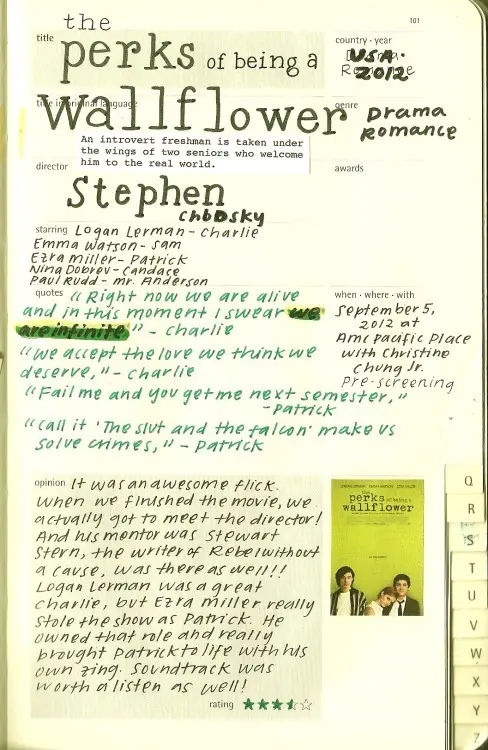 101
the
title
perks of being a
country · year
USA.
2012
title in original language
wallflower
genre
Drama
Romance
An introvert freshman is taken under
the wings of two seniors who welcome
him to the real world.
director
awards
Stephen
Chbosky
starring Logan Lerman - Charlie
Emma Watson - Sam
Ezra Miller - Patrick
Nina Dobrev - Candace
Paul Rudd - Mr. Anderson
quotes "Right now we are alive
and in this moment I swear we
are infinite" - Charlie
"We accept the love we think we
deserve," - Charlie
"Fail me and you get me next semester,"
- Patrick
"Call it 'The slut and the falcon' make us
solve crimes," - Patrick
when · where · with
September 5,
2012 at
AMC Pacific Place
with Christine
Chung Jr.
Pre-screening
opinion It was an awesome flick.
When we finished the movie, we
actually got to meet the director!
And his mentor was Stewart
Stern, the writer of Rebel without
a cause, was there as well!!
Logan Lerman was a great
Charlie, but Ezra Miller really
stole the show as Patrick. He
owned that role and really
brought Patrick to life with his
own zing. Soundtrack was
worth a listen as well!
rating
perks of being a
wallflower
Q
R
S
T
U
V
W
X
Y
Z